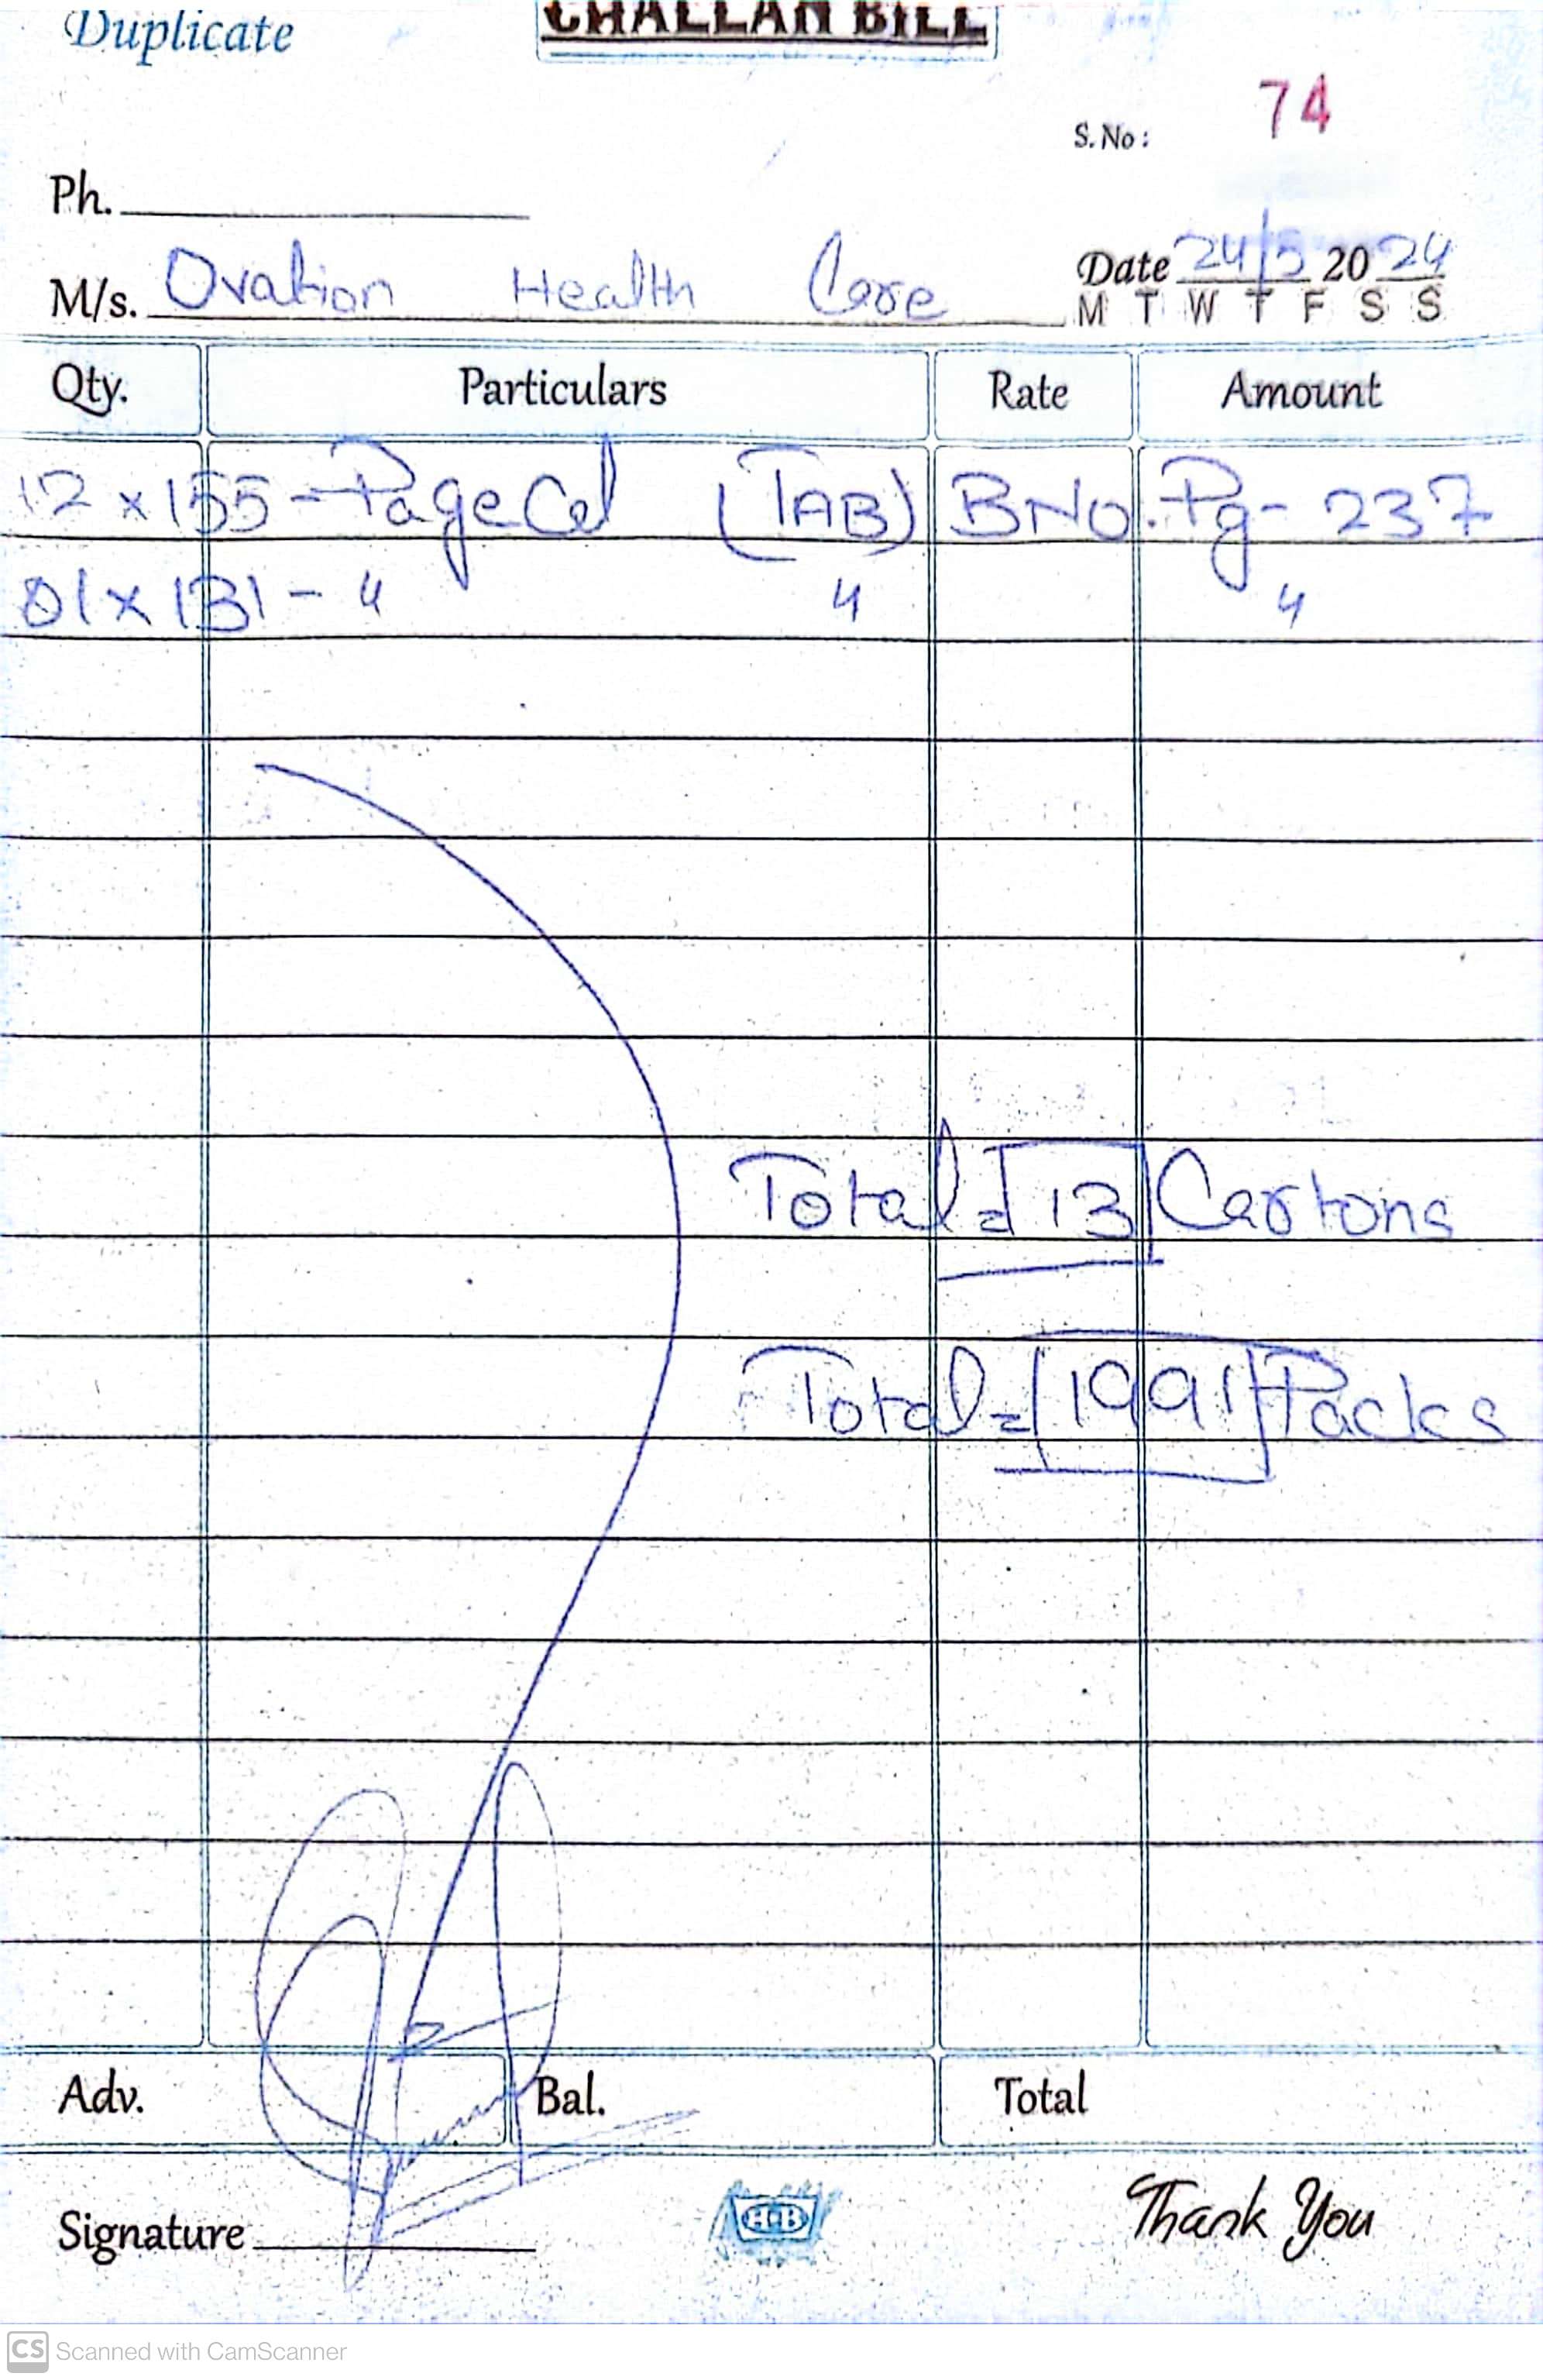 Duplicate
CHALLAN BILL
S. No : 74
Ph.
M/s. Ovation Health Care
Date 24/5 2024
M T W T F S S
Qty. Particulars Rate Amount
12 x 155 - PageCel (TAB) BNO. Pg- 237
01 x 131 - " " "
Total = 13 Cartons
Total = 1991 Packs
Adv. Bal. Total
Signature
HB
Thank You
CS Scanned with CamScanner